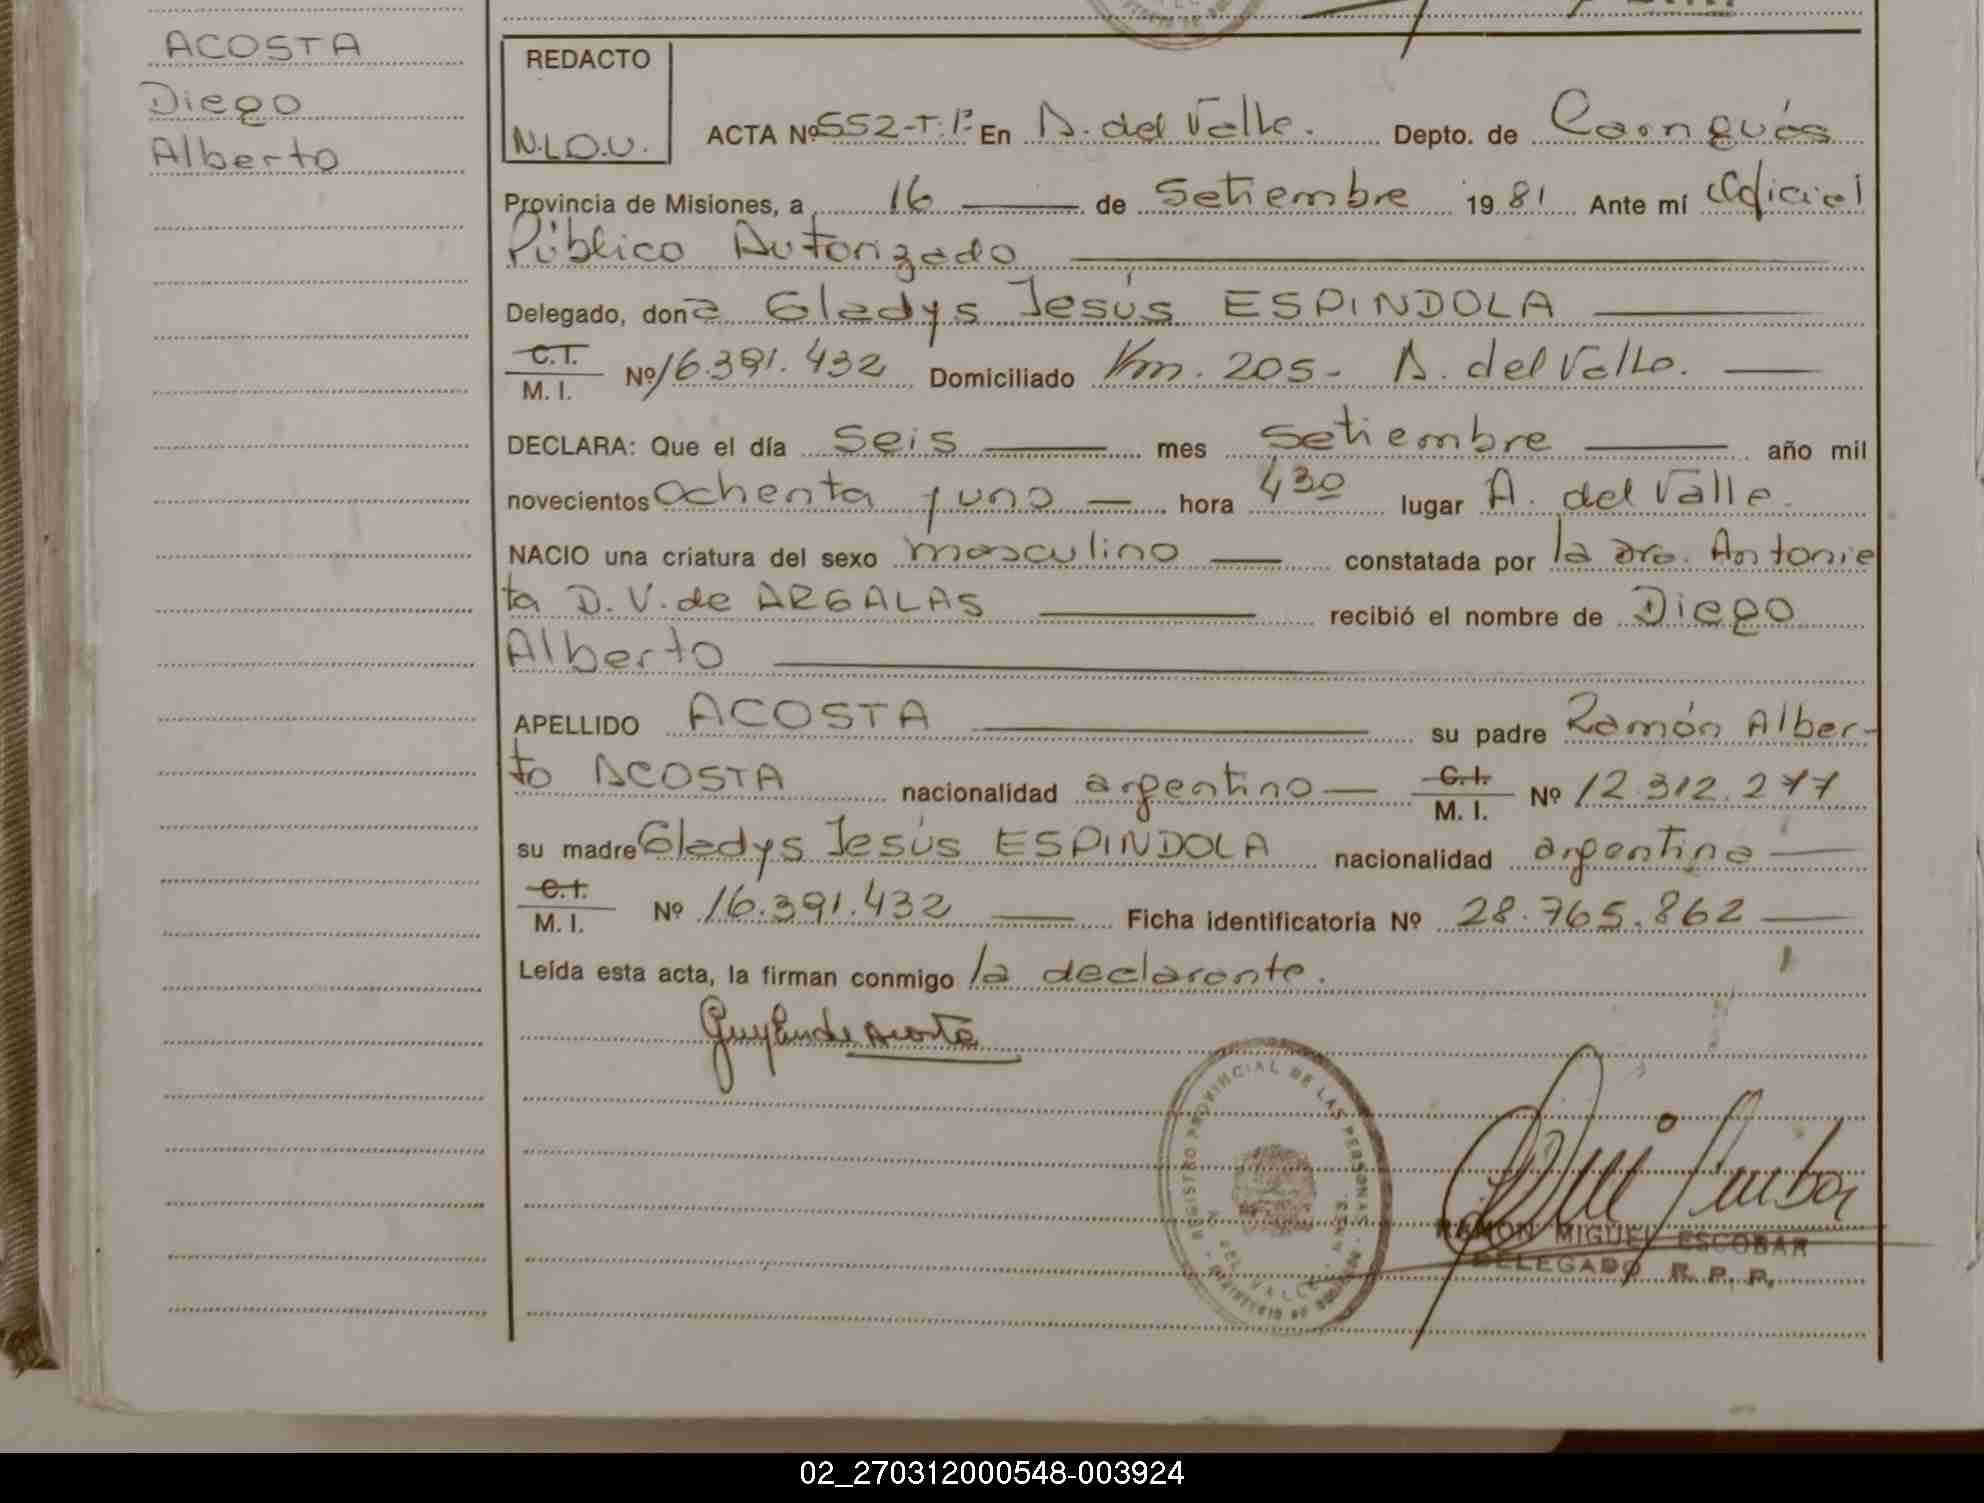 ACOSTA
Diego
Alberto
REDACTO
N.L.O.U.
ACTA Nº 552-T:1º En A. del Valle. Depto. de Cainguás
Provincia de Misiones, a 16 de Setiembre 1981 Ante mí Oficial
Público Autorizado
Delegado, dona Gladys Jesús ESPINDOLA
C.I.
M. I. Nº 16.391.432 Domiciliado Km. 205- A. del Valle.
DECLARA: Que el día seis mes setiembre año mil
novecientos ochenta y uno hora 430 lugar A. del Valle.
NACIO una criatura del sexo masculino constatada por la dra. Antonie
ta D. V. de ARGALAS recibió el nombre de Diego
Alberto
APELLIDO ACOSTA su padre Ramón Alber-
to ACOSTA nacionalidad argentino C.I.
M. I. Nº 12.312.277
su madre Gladys Jesús ESPINDOLA nacionalidad argentina
C.I.
M. I. Nº 16.391.432 Ficha identificatoria Nº 28.765.862
Leída esta acta, la firman conmigo la declarante.
de Acosta
REGISTRO PROVINCIAL DE LAS PERSONAS
A. DEL VALLE
RAMON MIGUEL ESCOBAR
DELEGADO R. P. P.
02_270312000548-003924